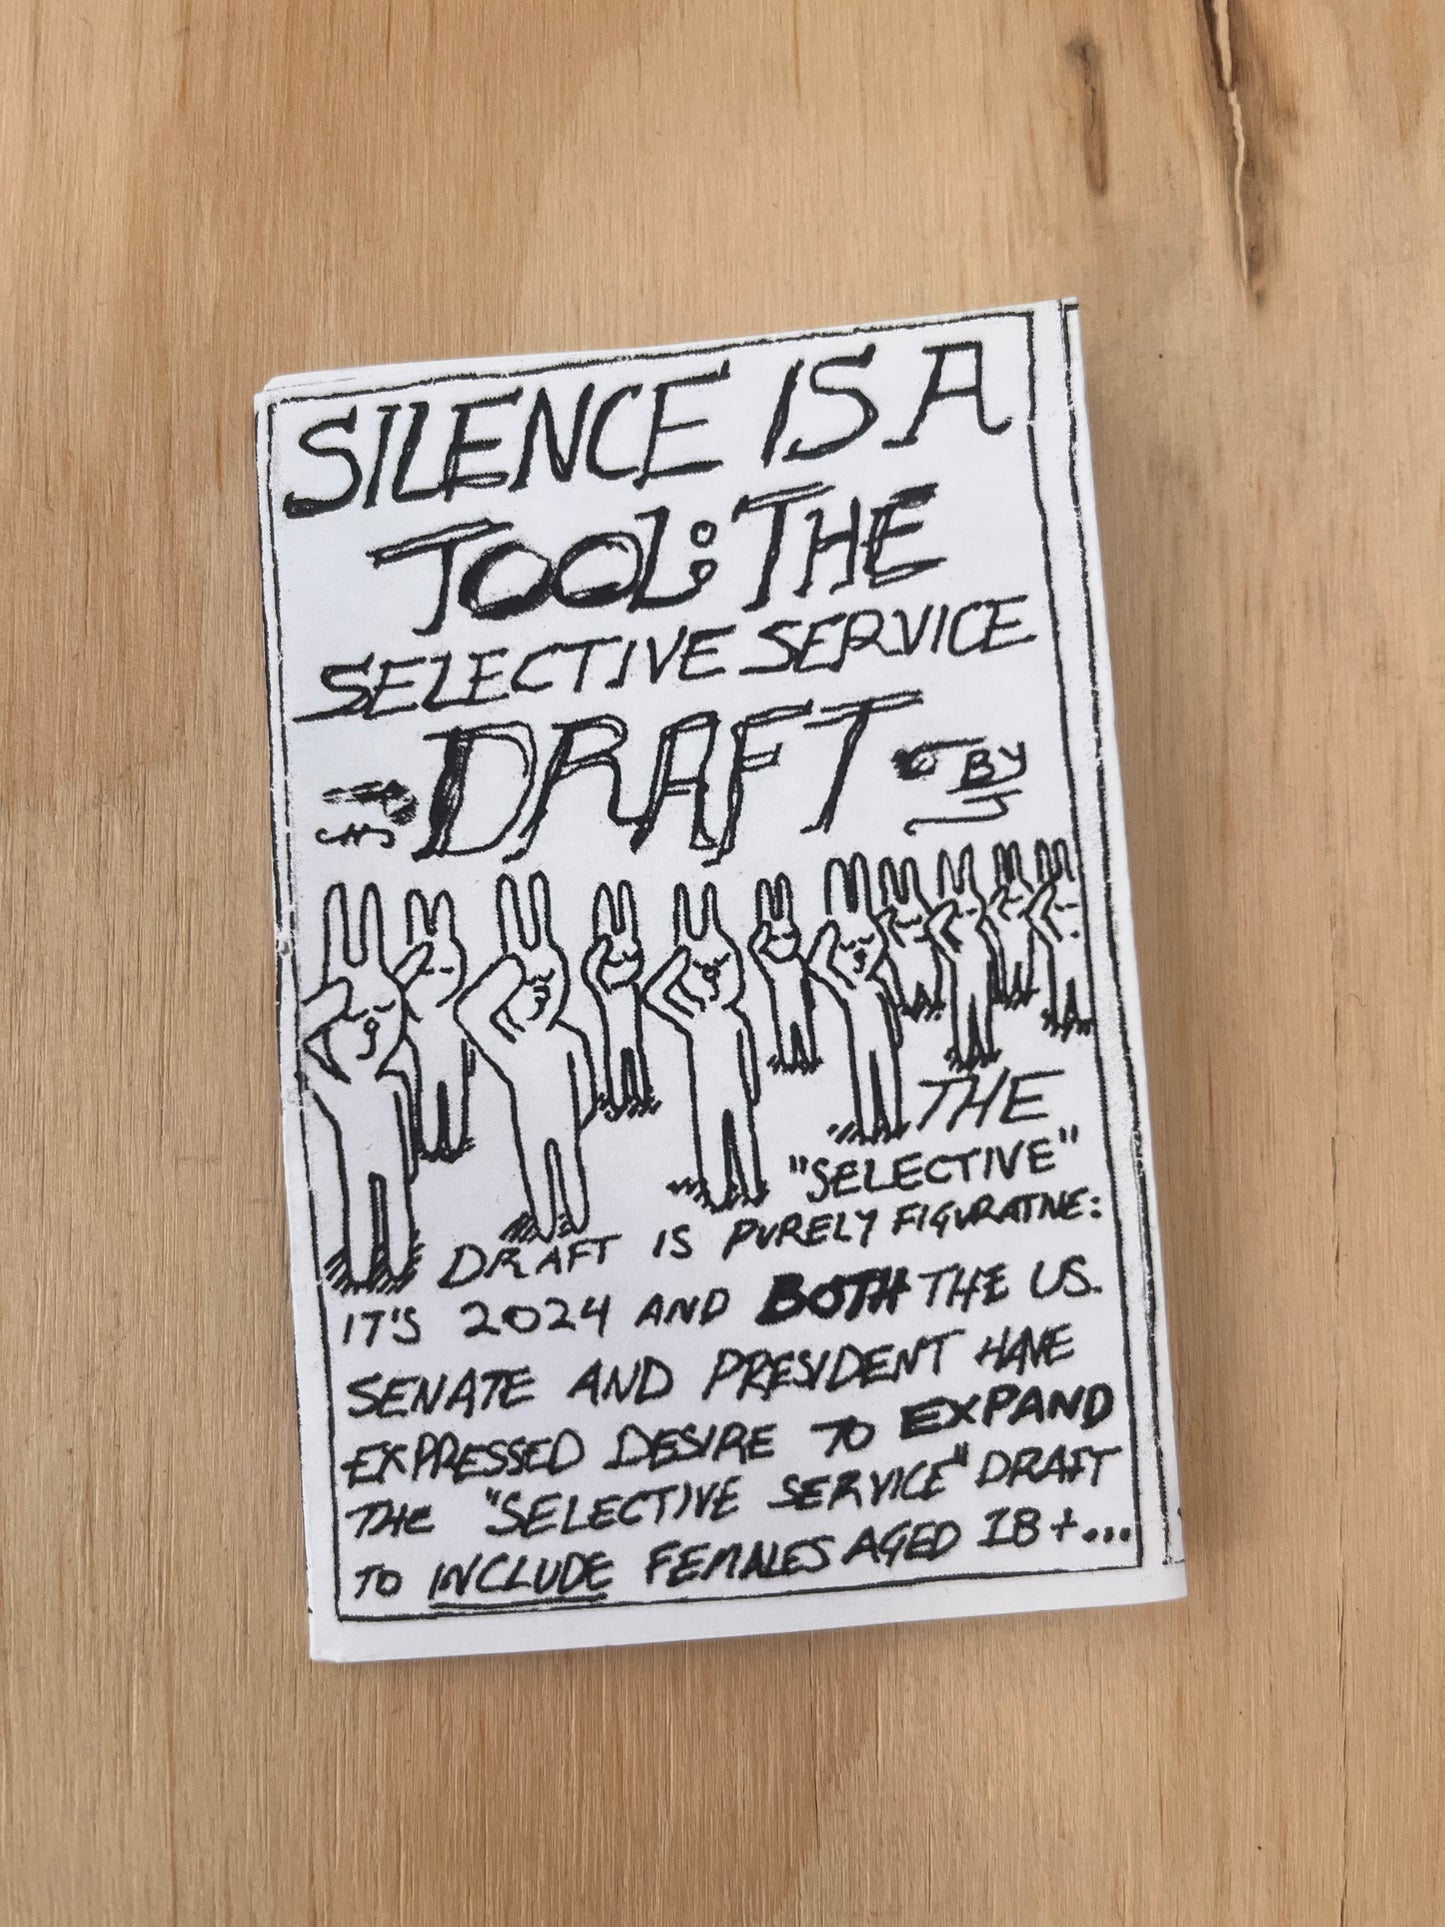 SILENCE IS A
TOOL: THE
SELECTIVE SERVICE
DRAFT
BY
J
THE
"SELECTIVE"
DRAFT IS PURELY FIGURATIVE:
IT'S 2024 AND BOTH THE US.
SENATE AND PRESIDENT HAVE
EXPRESSED DESIRE TO EXPAND
THE "SELECTIVE SERVICE" DRAFT
TO INCLUDE FEMALES AGED 18+...